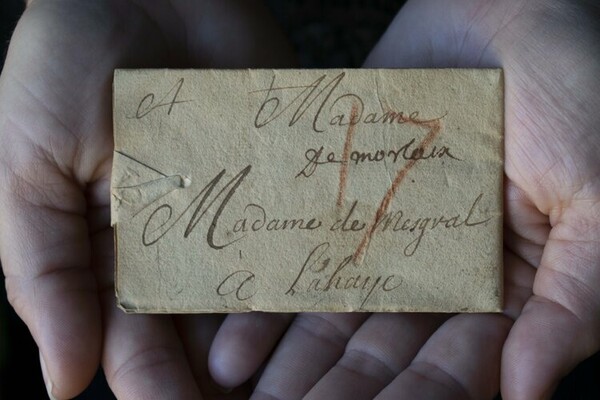 A Madame
De morlaix
Madame de Mesgral
a Lahaye
17